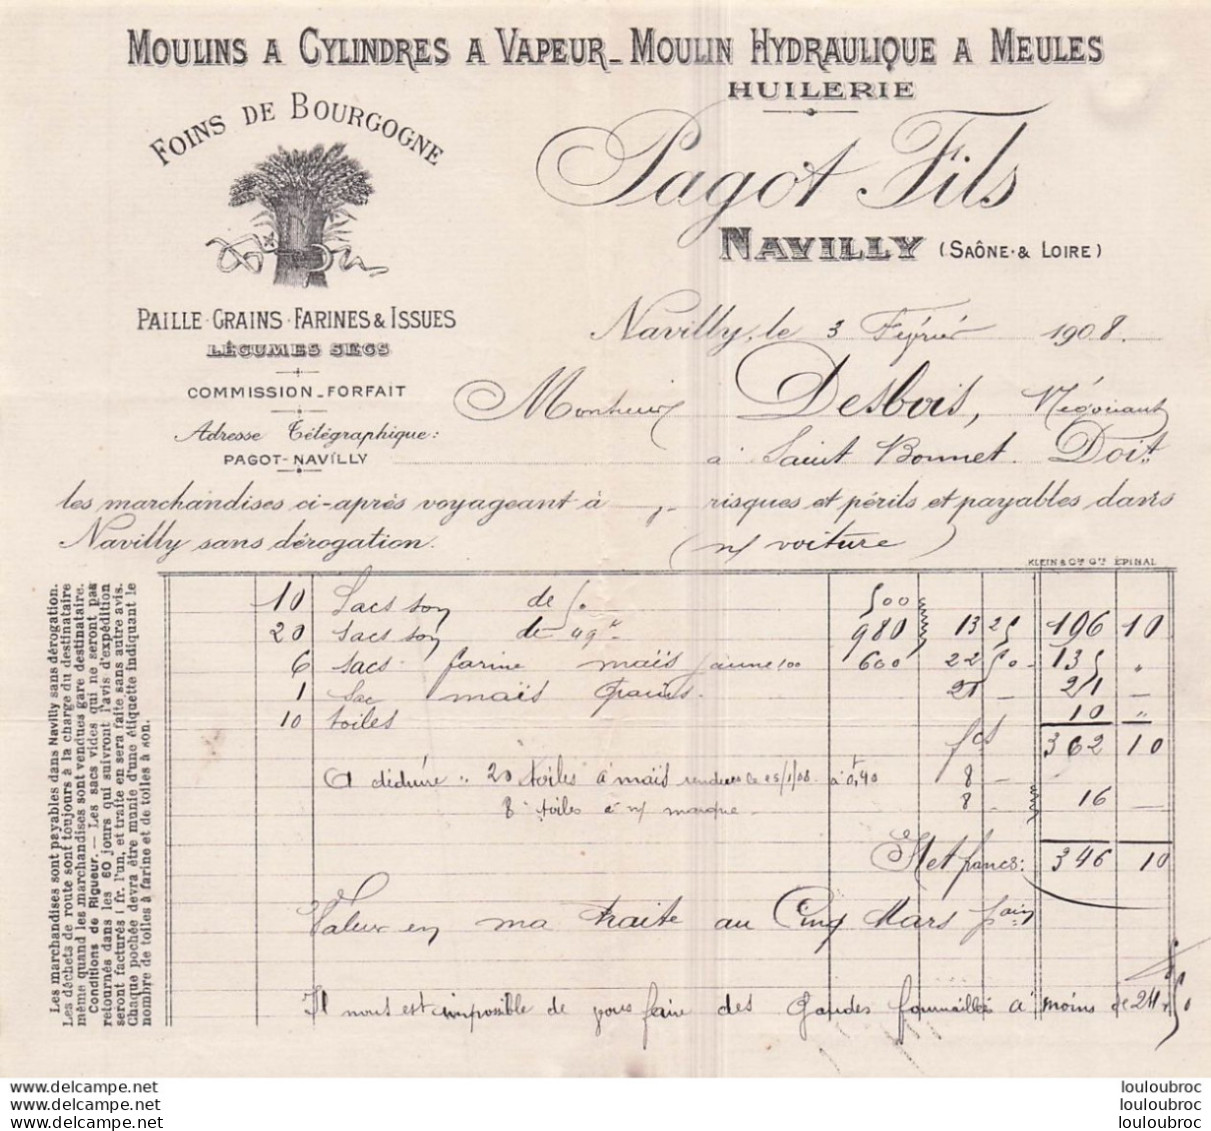 MOULINS A CYLINDRES A VAPEUR_MOULIN HYDRAULIQUE A MEULES
HUILERIE
FOINS DE BOURGOGNE
Pagot Fils
NAVILLY (SAÔNE-& LOIRE)
PAILLE-GRAINS-FARINES & ISSUES
LÉGUMES SECS
COMMISSION_FORFAIT
Adresse Télégraphique:
PAGOT-NAVILLY
Navilly, le 3 Février 1908.
Monsieur Desbois, Négociant
à Saint Bonnet. Doit
les marchandises ci-après voyageant à risques et périls et payables dans
Navilly sans dérogation. (n/ voiture)
KLEIN & Cie Gts ÉPINAL
10 Sacs son de 50 500
20 sacs son de 49 k 980 13 25 196 10
6 sacs farine maïs jaune 100 600 22 50 135 "
1 sac maïs 21 — 21 —
10 toiles 10 "
fcs 362 10
A déduire .. 20 toiles à maïs rendues le 25/1/08 à 0,40 8 —
8 toiles à n/ marque 8 — 16 —
Net francs: 346 10
Valeur en ma traite au Cinq Mars
Il nous est impossible de vous faire des à moins de 24
Les marchandises sont payables dans Navilly sans dérogation.
Les déchets de route sont toujours à la charge du destinataire
même quand les marchandises sont vendues gare destinataire.
Conditions de Rigueur. — Les sacs vides qui ne seront pas
retournés dans les 60 jours qui suivront l'avis d'expédition
seront facturés 1 fr. l'un, et traite en sera faite sans autre avis.
Chaque pochée devra être munie d'une étiquette indiquant le
nombre de toiles à farine et de toiles à son.
www.delcampe.net
www.delcampe.net
www.delcampe.net
louloubroc
louloubroc
louloubroc